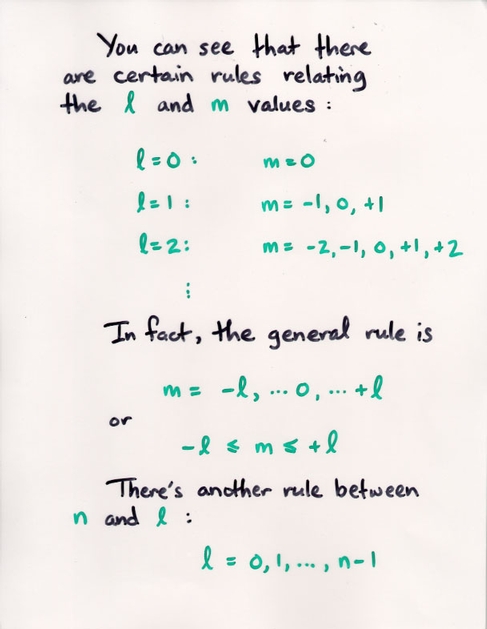 You can see that there
are certain rules relating
the l and m values :
l = 0 : m = 0
l = 1 : m = -1, 0, +1
l = 2 : m = -2, -1, 0, +1, +2
⋮
In fact, the general rule is
m = -l, ... 0, ... +l
or
-l ≤ m ≤ +l
There's another rule between
n and l :
l = 0, 1, ..., n-1